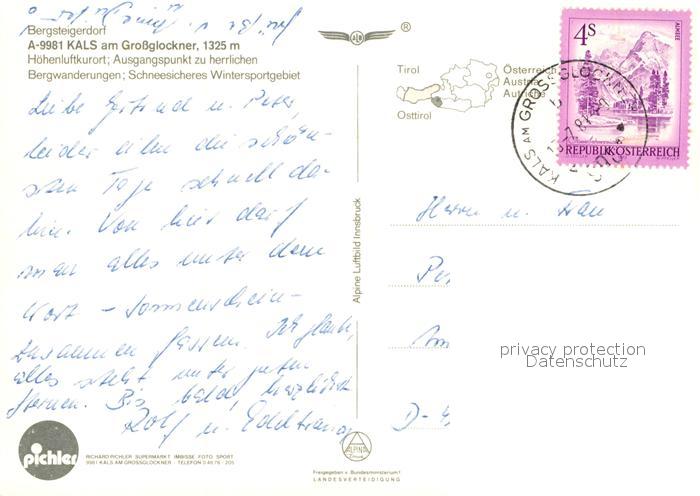 Bergsteigerdorf
A-9981 KALS am Großglockner, 1325 m
Höhenluftkurort; Ausgangspunkt zu herrlichen
Bergwanderungen; Schneesicheres Wintersportgebiet
Liebe Gertrud u. Peter,
leider eilen die schön-
sten Tage schnell da-
hin. Von hier darf
man alles unter dem
Wort - Sonnenschein -
zusammen fassen. Ich glaube,
alles steht unter guten
Sternen. Bis bald, herzlichst
Rolf u. Edeltraud
pichler
RICHARD PICHLER SUPERMARKT IMBISSE FOTO SPORT
9981 KALS AM GROSSGLOCKNER · TELEFON 0 48 76 - 205
Alpine Luftbild Innsbruck
®
Tirol
Osttirol
Österreich
Austria
Autriche
4S
ALMSEE
REPUBLIK ÖSTERREICH
KALS AM GROSSGLOCKNER
Herrn u. Frau
Pe
Am
D-
privacy protection
Datenschutz
ALPINA
Freigegeben v. Bundesministerium f.
LANDESVERTEIDIGUNG